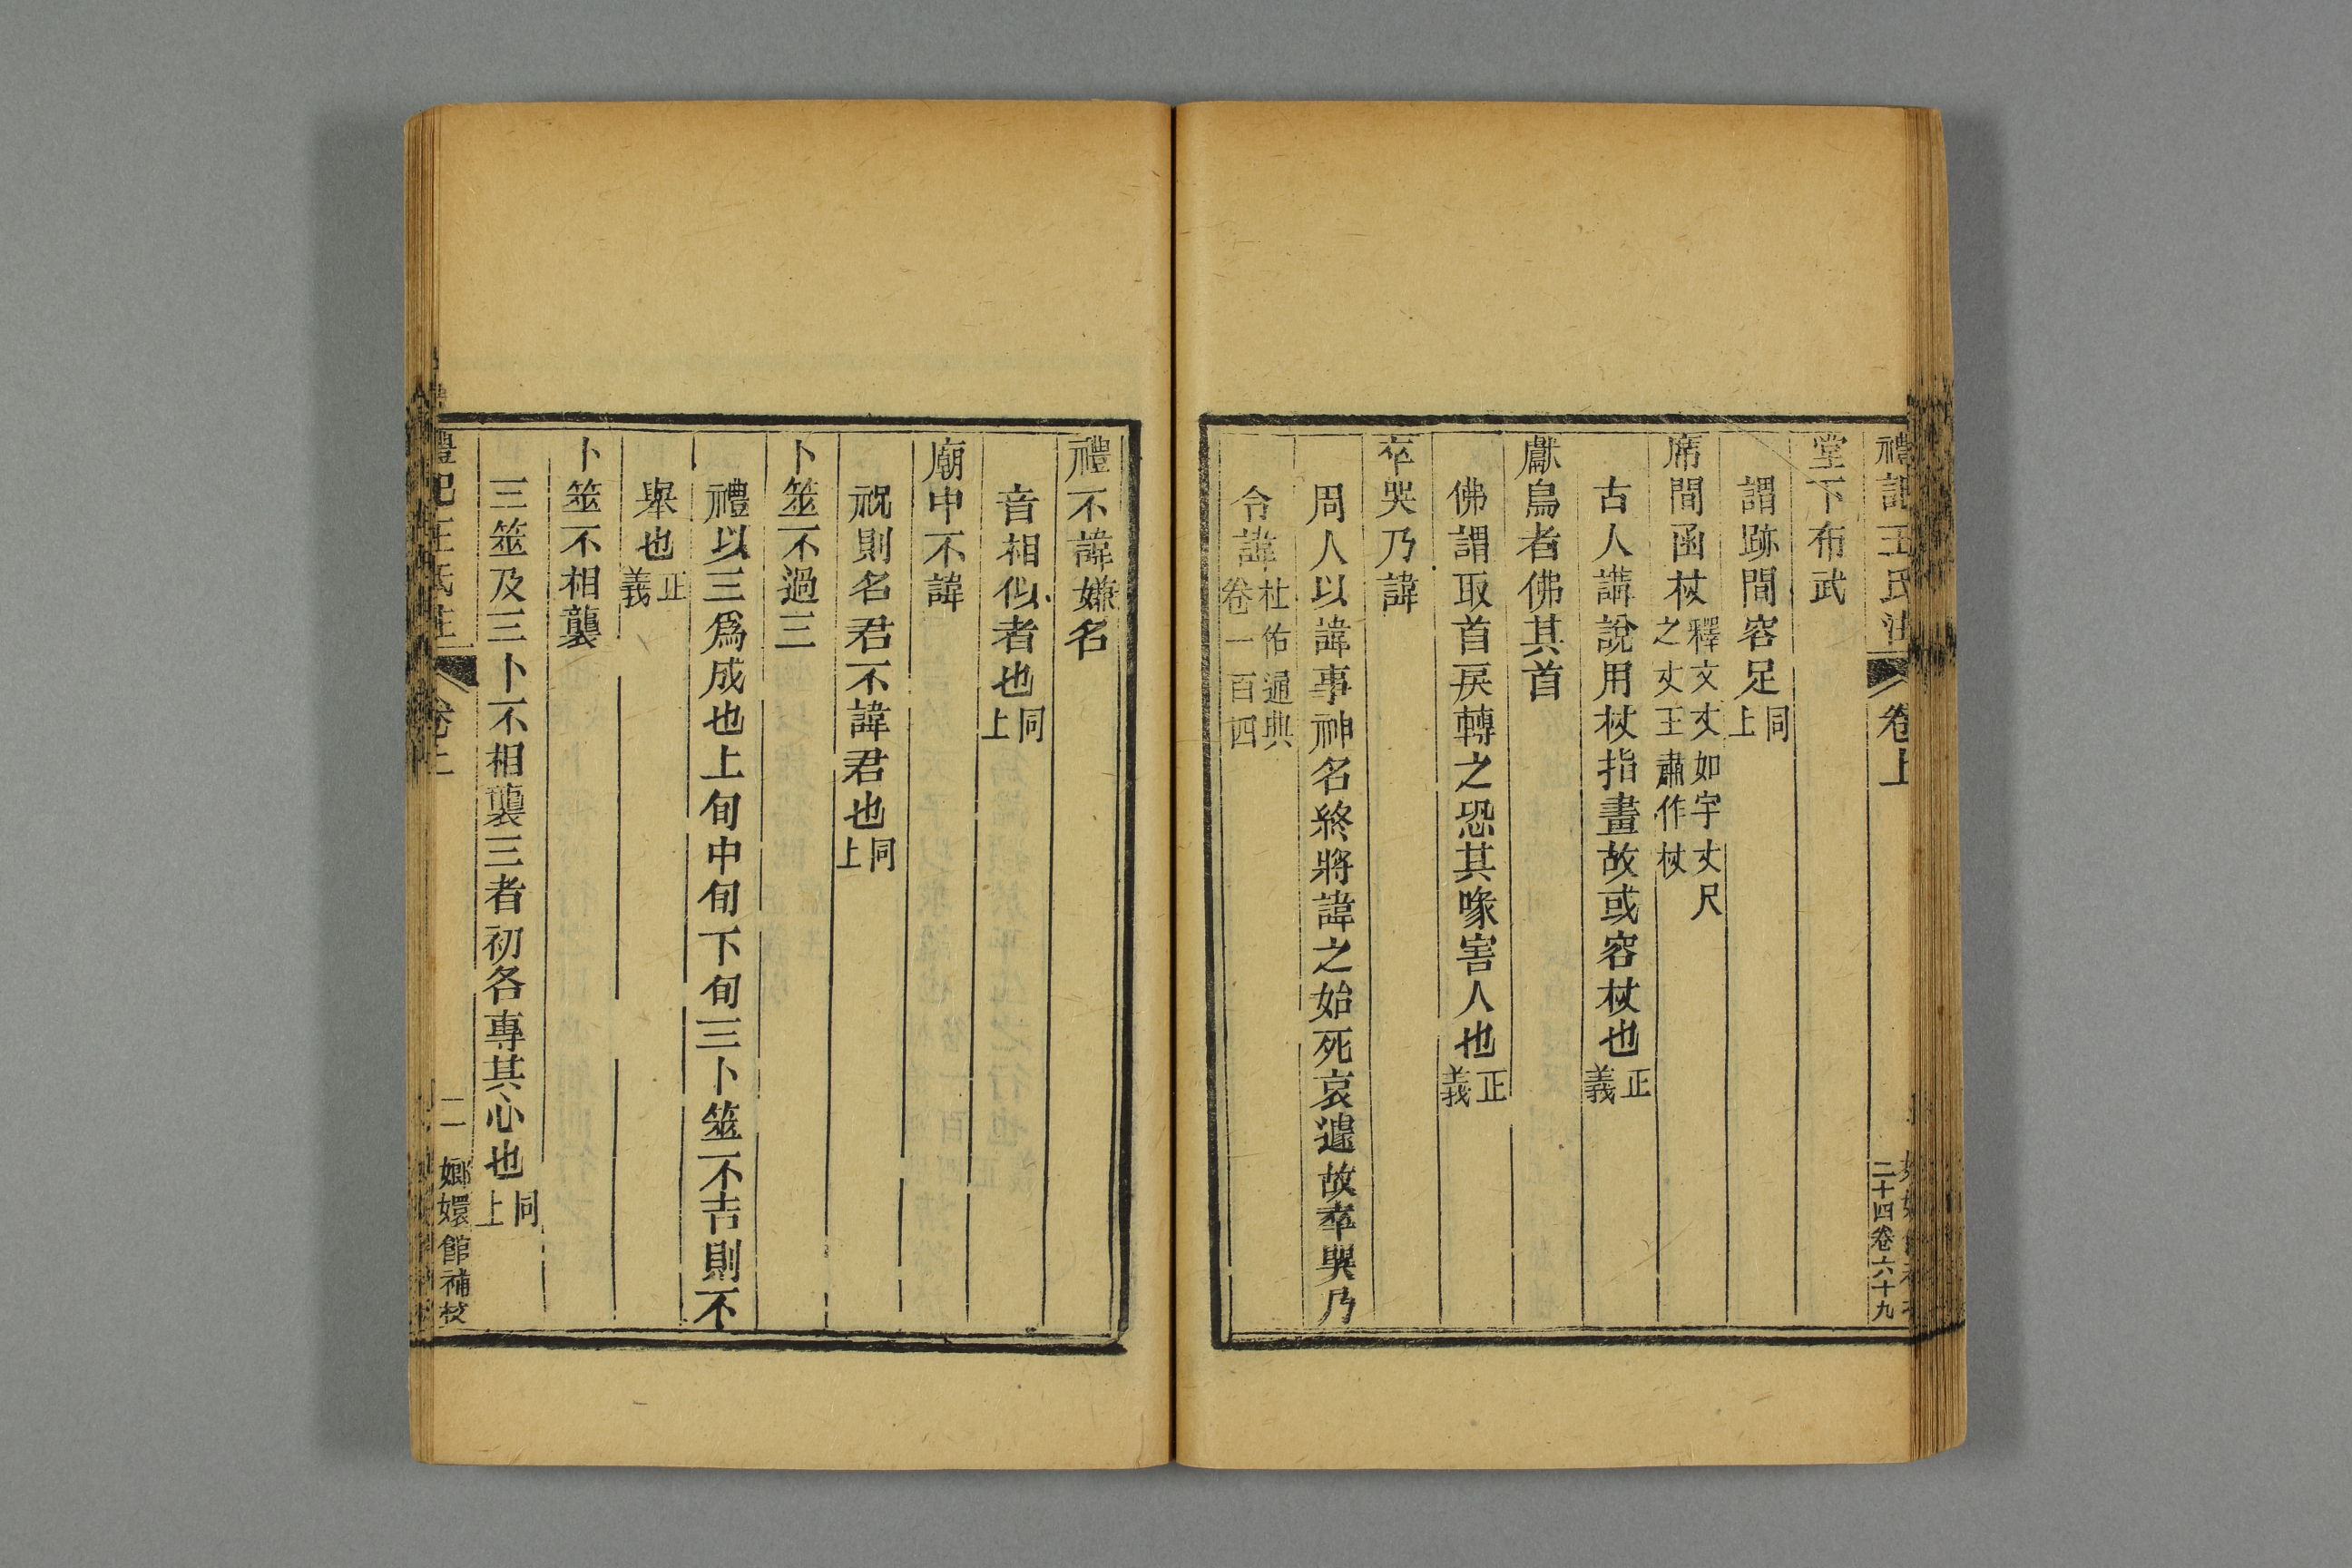 禮記王氏注 卷上 二十四卷六十九
堂下布武
謂跡間容足同上
席間函杖釋文丈如字丈尺之丈王肅作杖
古人講說用杖指畫故或容杖也正義
獻鳥者佛其首
佛謂取首戾轉之恐其喙害人也正義
卒哭乃諱
周人以諱事神名終將諱之始死哀遽故卒哭乃
令諱杜佑通典卷一百四
禮不諱嫌名
音相似者也同上
廟中不諱
祝則名君不諱君也同上
卜筮不過三
禮以三爲成也上旬中旬下旬三卜筮不吉則不
舉也正義
卜筮不相襲
三筮及三卜不相襲三者初各專其心也同上
禮記王氏注 卷上 二 嫏嬛館補校